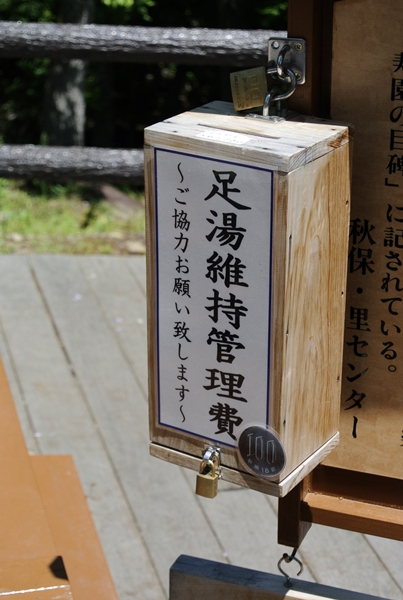 足湯維持管理費
～ご協力お願い致します～
100
寿園の目碑」に記されている。
秋保・里センター